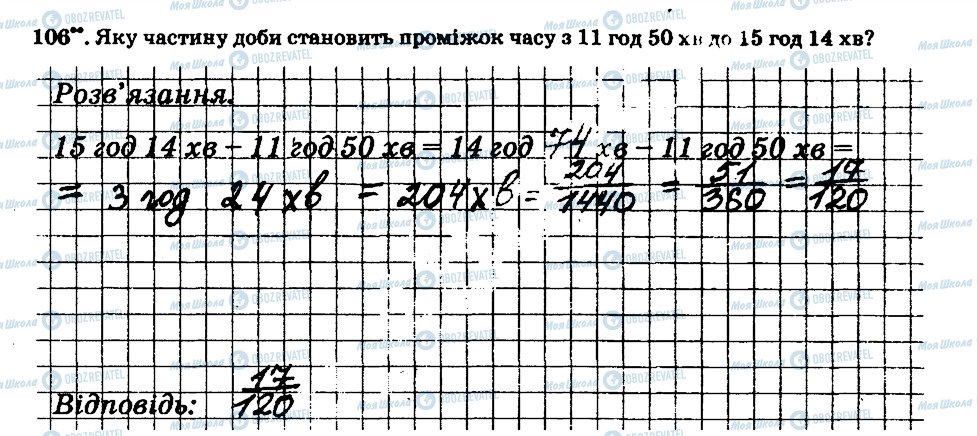 106••. Яку частину доби становить проміжок часу з 11 год 50 хв до 15 год 14 хв?
Розв'язання.
15 год 14 хв – 11 год 50 хв = 14 год 74 хв – 11 год 50 хв =
= 3 год 24 хв = 204 хв = 204/1440 = 51/360 = 17/120
Відповідь: 17/120